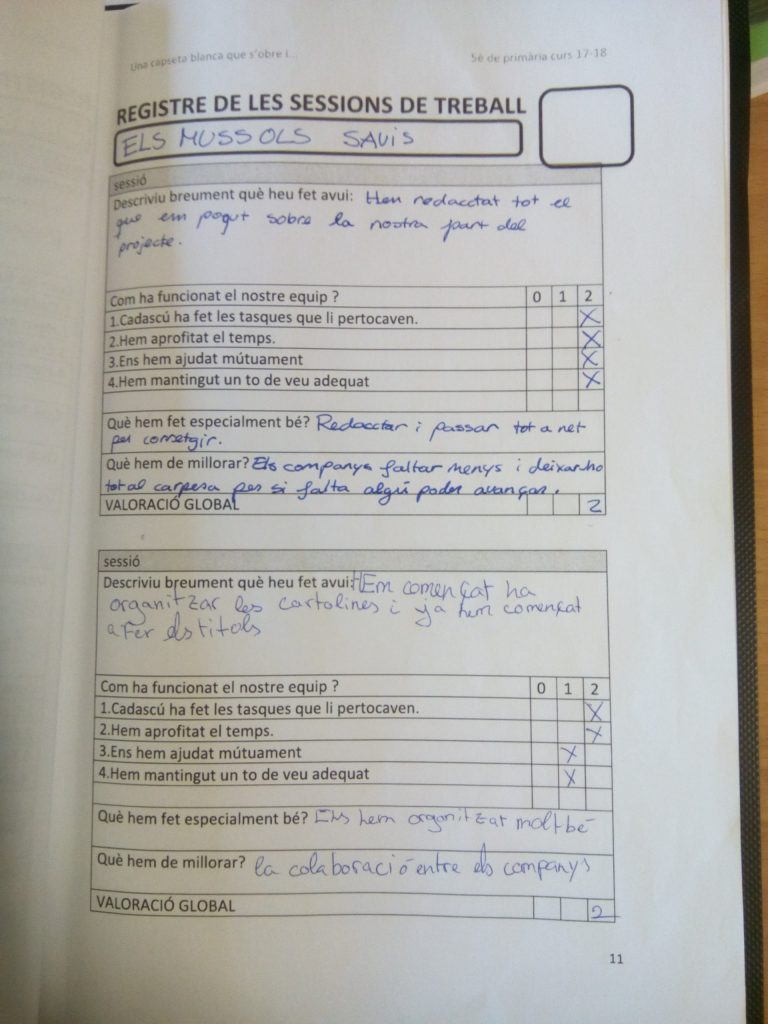 Una capseta blanca que s'obre i... 5è de primària curs 17-18
REGISTRE DE LES SESSIONS DE TREBALL
ELS MUSSOLS SAVIS
sessió
Descriviu breument què heu fet avui: Hem redacctat tot el
que em pogut sobre la nostra part del
projecte.
Com ha funcionat el nostre equip ? 0 1 2
1.Cadascú ha fet les tasques que li pertocaven. X
2.Hem aprofitat el temps. X
3.Ens hem ajudat mútuament X
4.Hem mantingut un to de veu adequat X
Què hem fet especialment bé? Redacctar i passar tot a net
per corretgir.
Què hem de millorar? Els companys faltar menys i deixarho
tot al carpesa per si falta algú poder avançar.
VALORACIÓ GLOBAL 2
sessió
Descriviu breument què heu fet avui: HEm començat ha
organitzar les cartolines i ya hem començat
a Fer els titols
Com ha funcionat el nostre equip ? 0 1 2
1.Cadascú ha fet les tasques que li pertocaven. X
2.Hem aprofitat el temps. X
3.Ens hem ajudat mútuament X
4.Hem mantingut un to de veu adequat X
Què hem fet especialment bé? Ens hem organitzat molt bé
Què hem de millorar? la colaboració entre els companys
VALORACIÓ GLOBAL 2
11